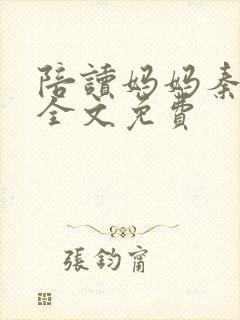 陪讀媽媽秦
全文免費
張鈞甯